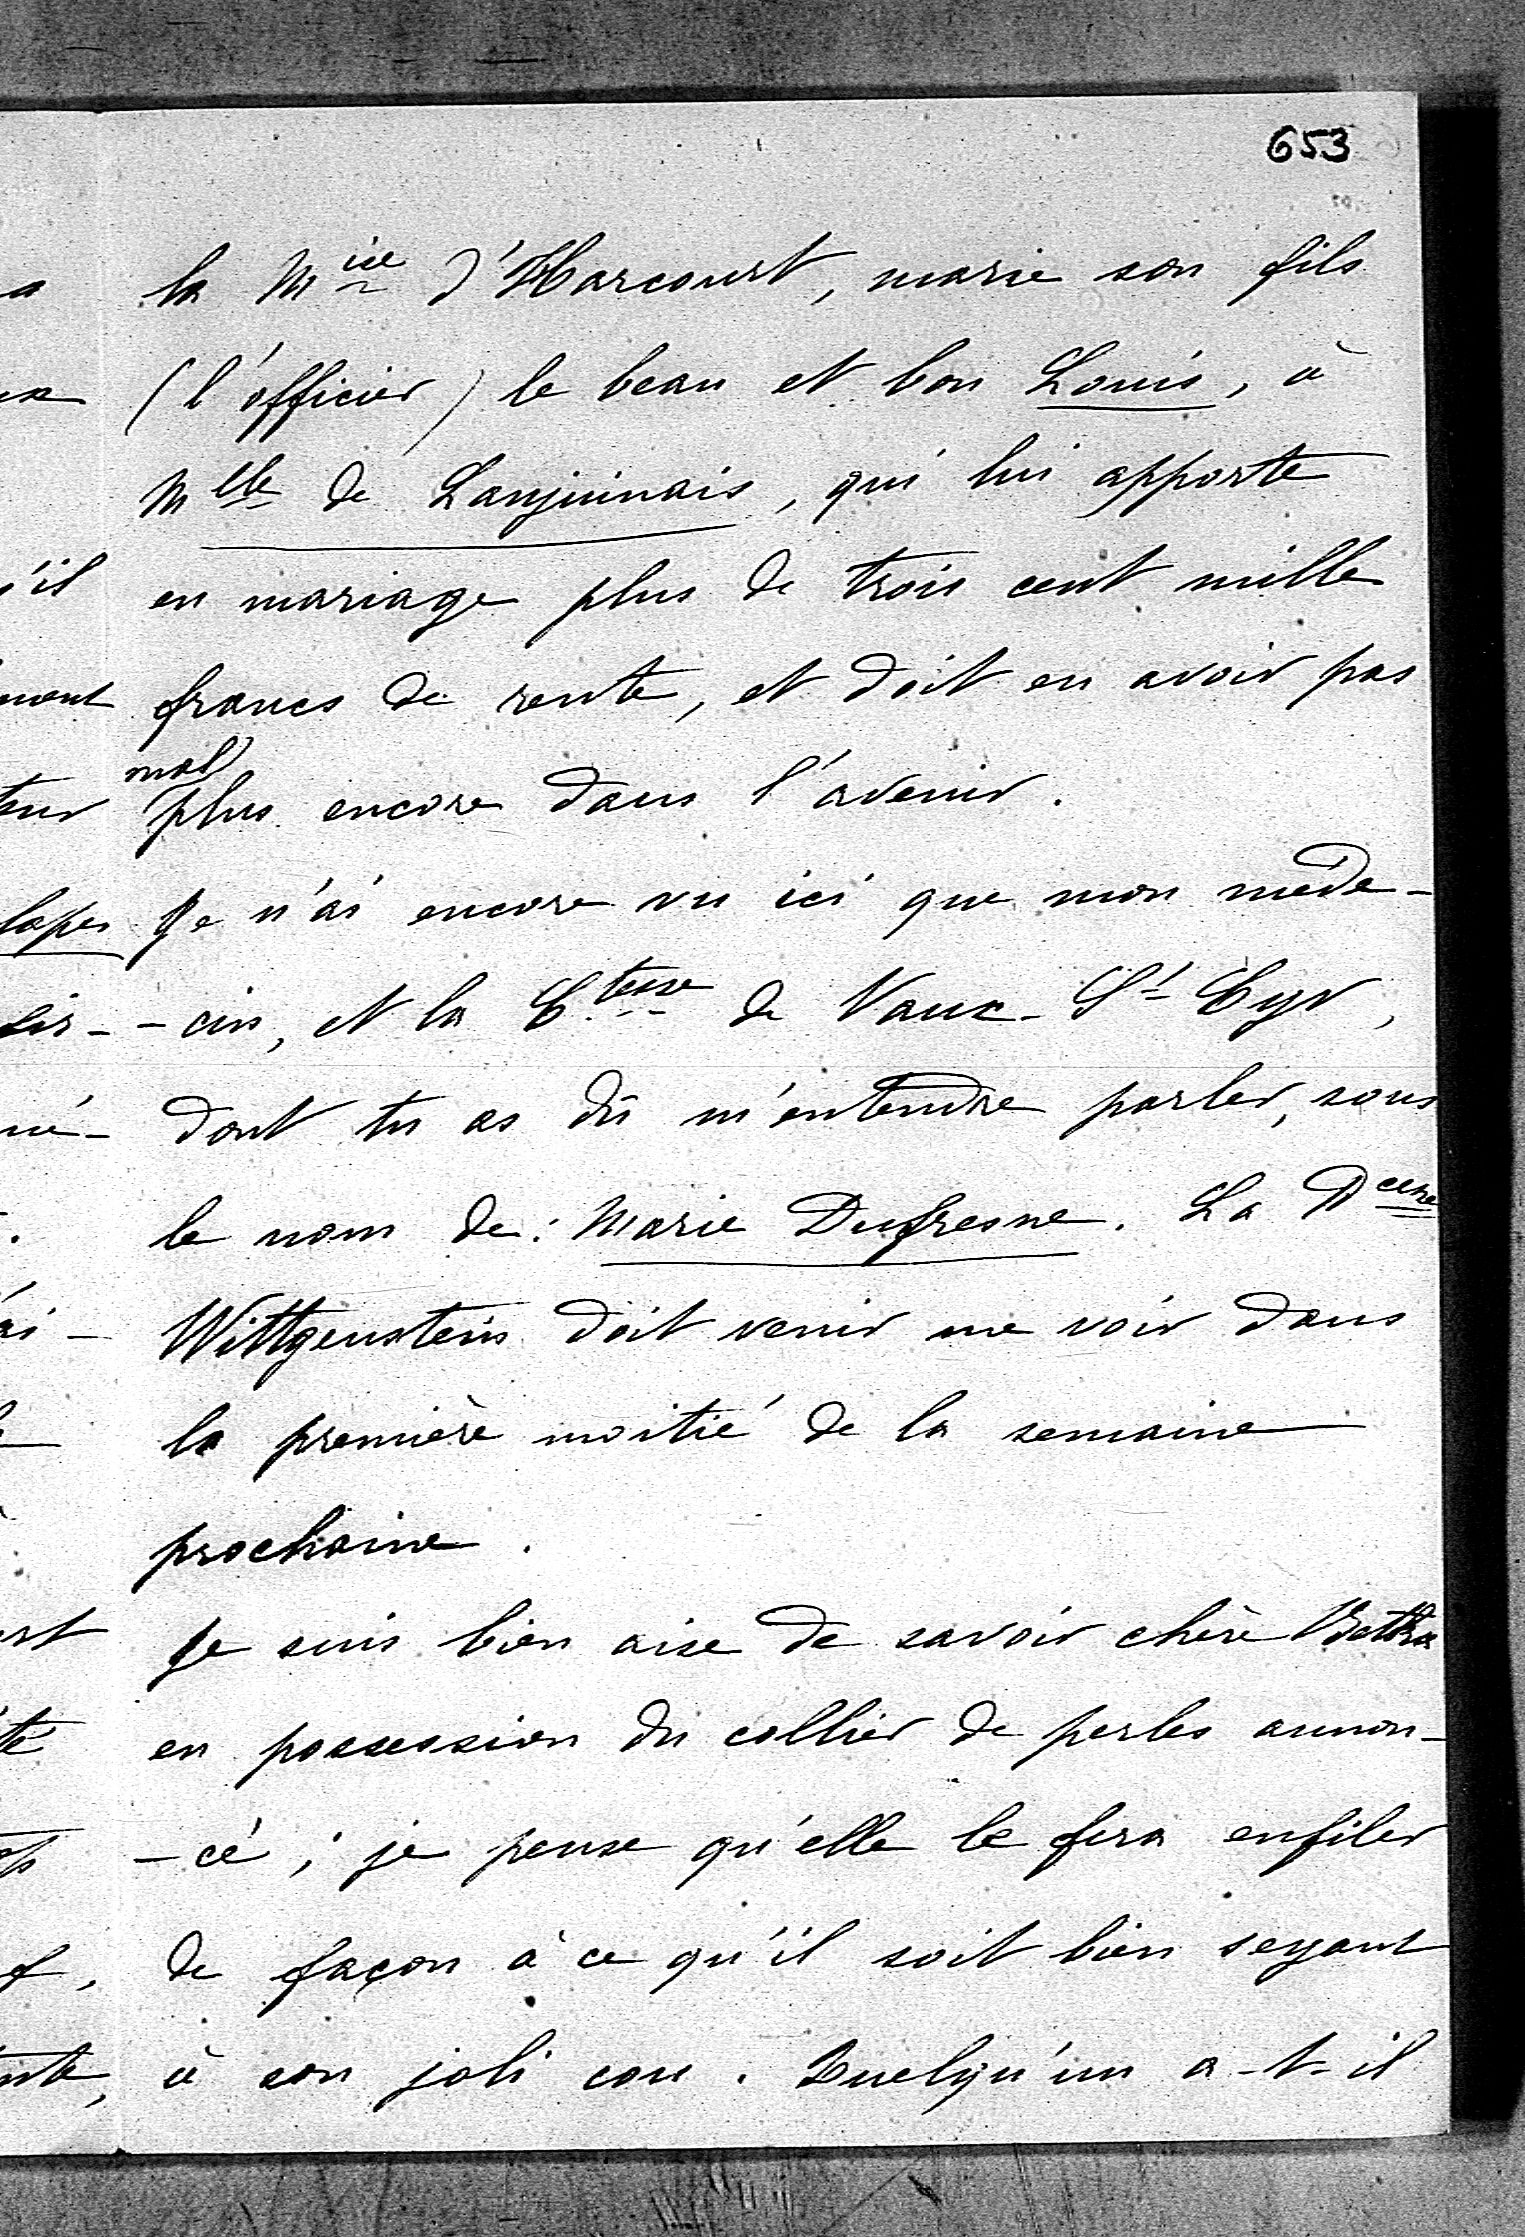 653
la Mise d'Harcourt, marie son fils
(l'officier) le beau et bon Louis, à
Mlle de Lanjuinais, qui lui apporte
en mariage plus de trois cent mille
francs de rente, et doit en avoir pas
mal
plus encore dans l'avenir.
Je n'ai encore vu ici que mon mede-
-cin, et la Ctesse de Vaux-St Cyr,
dont tu as dû m'entendre parler, sous
le nom de: Marie Dufresne. La Pcesse
Wittgenstein doit venir me voir dans
la première moitié de la semaine
prochaine.
Je suis bien aise de savoir chère
en possession du collier de perles annon-
-cé; je pense qu'elle le fera enfiler
de façon à ce qu'il soit bien seyant
à son joli cou. Quelqu'un a-t-il